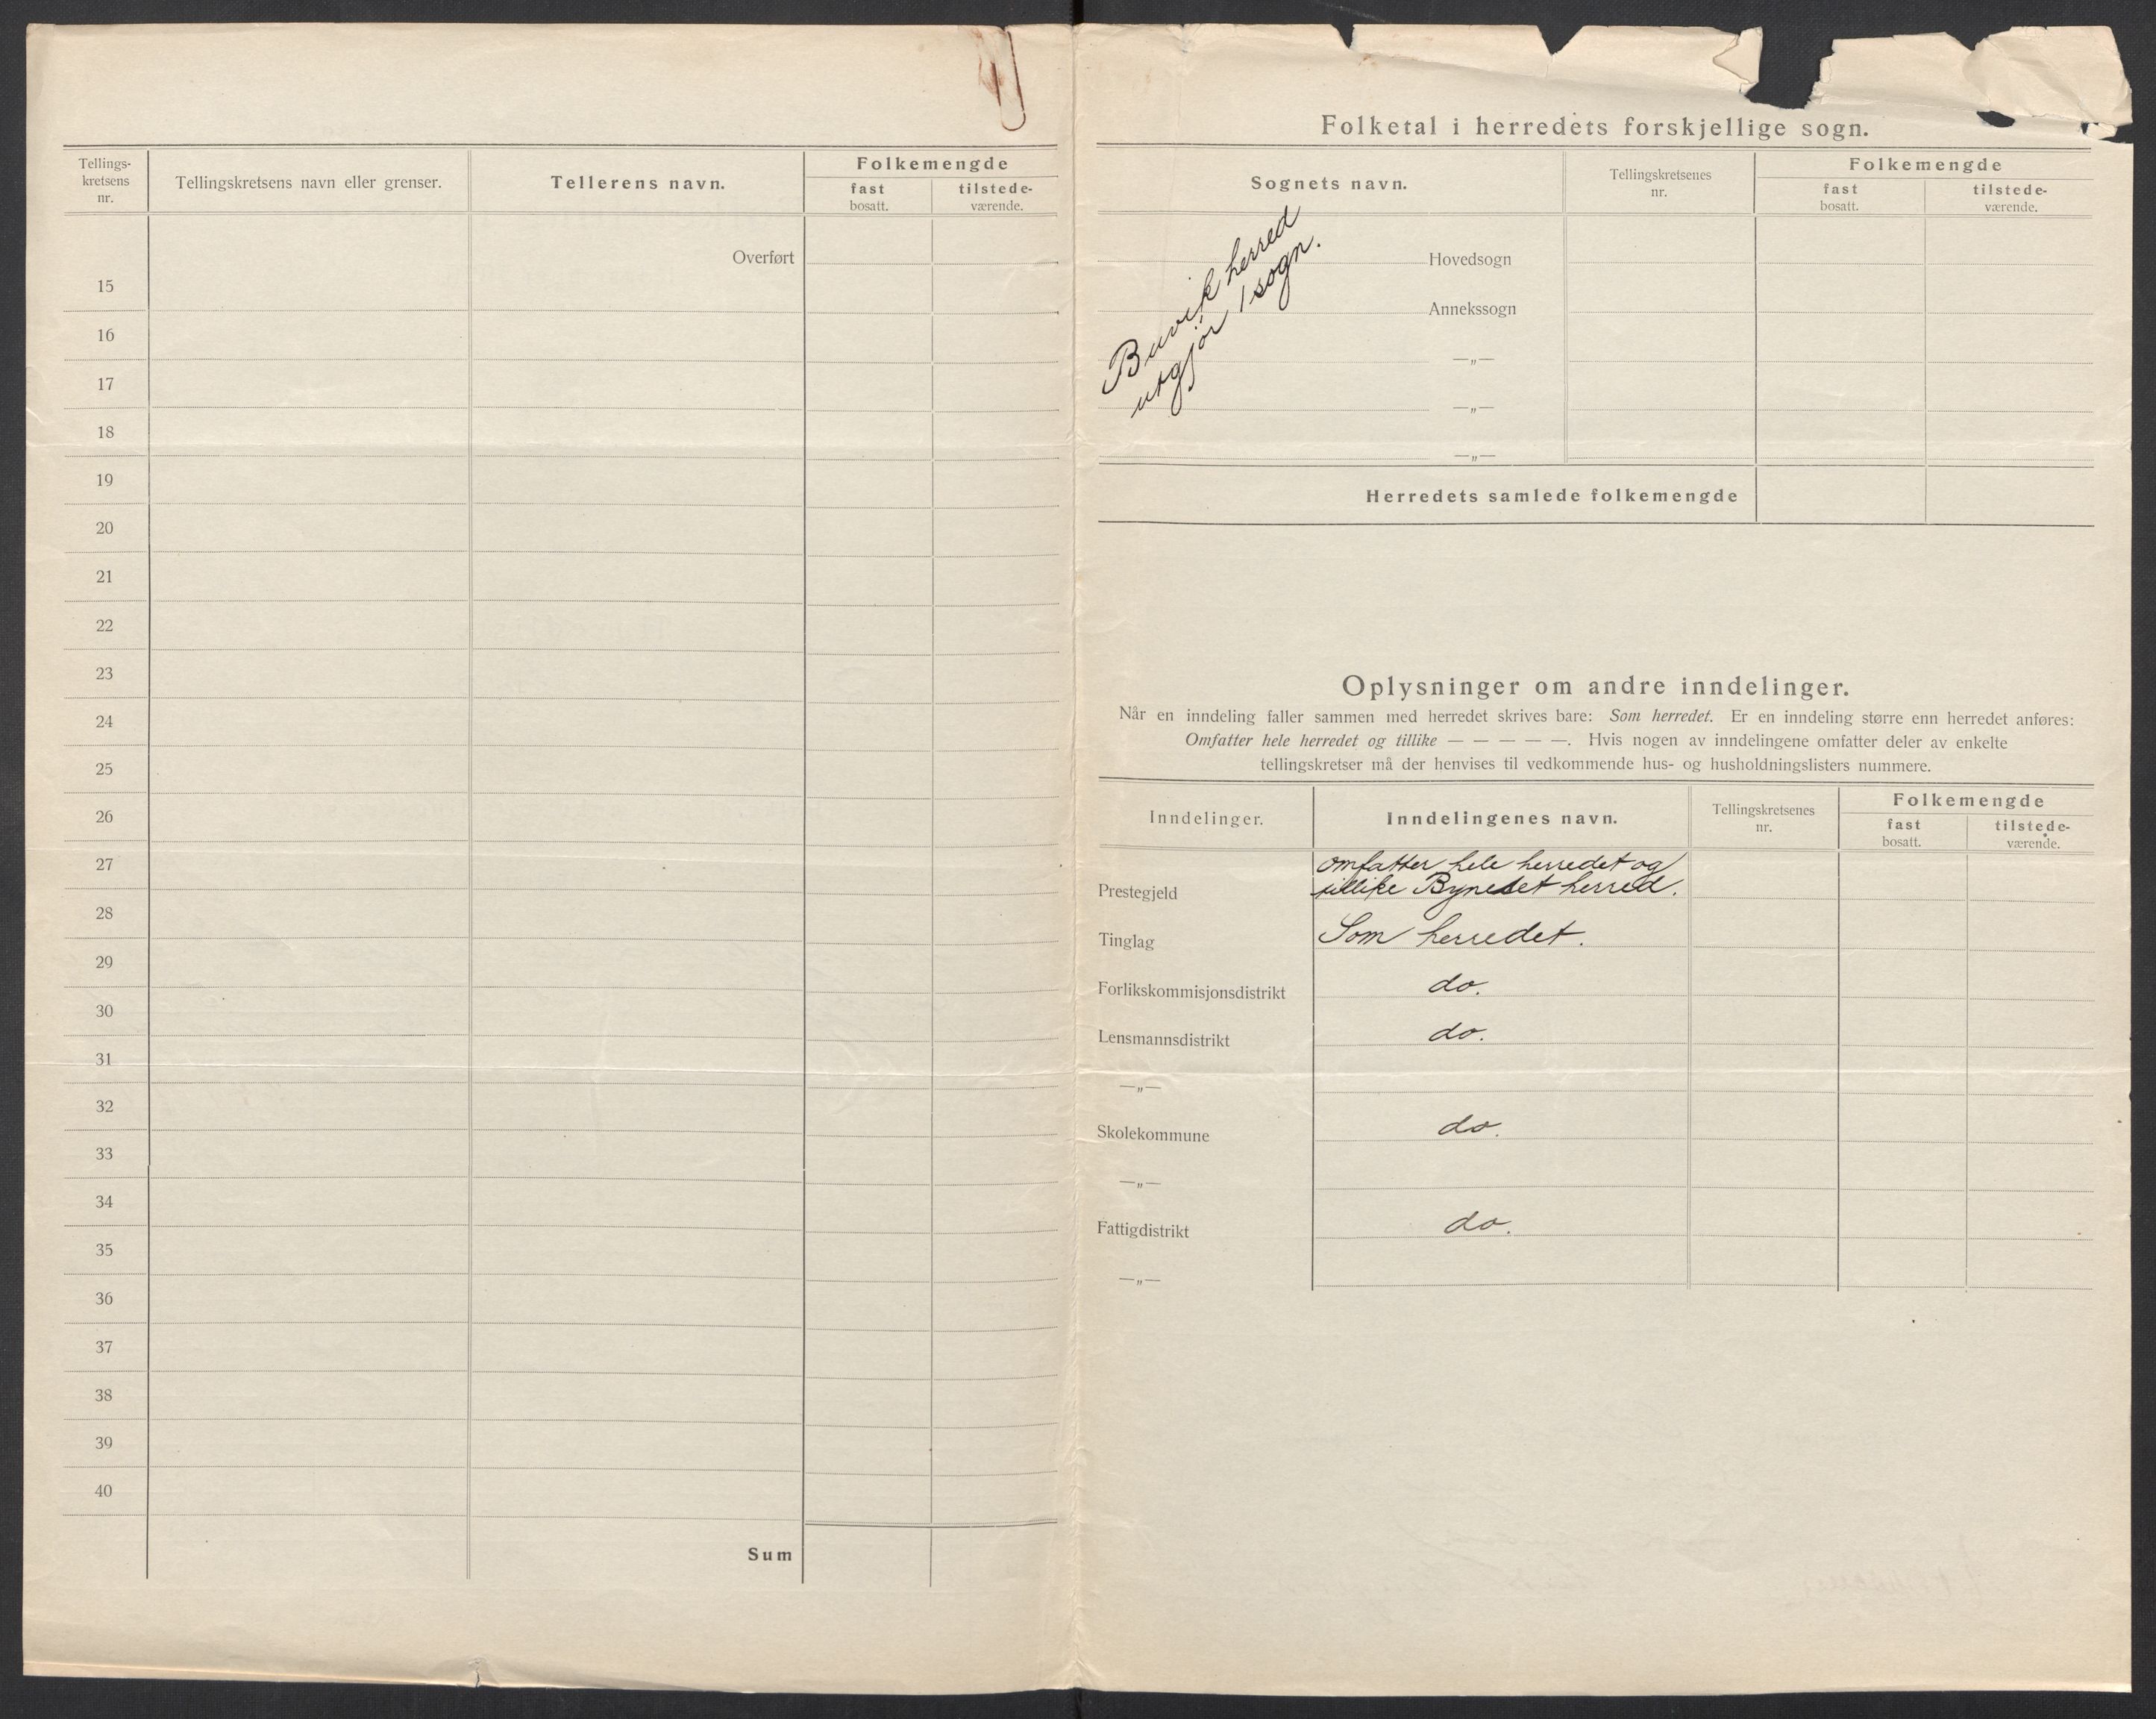 Tellings-
kretsens
nr.
Tellingskretsens navn eller grenser.
Tellerens navn.
Folkemengde
fast
bosatt.
tilstede-
værende.
Overført
15
16
17
18
19
20
21
22
23
24
25
26
27
28
29
30
31
32
33
34
35
36
37
38
39
40
Sum
Folketal i herredets forskjellige sogn.
Sognets navn.
Tellingskretsenes
nr.
Folkemengde
fast
bosatt.
tilstede-
værende.
Buvik herred
utgjør 1 sogn.
Hovedsogn
Annekssogn
—„—
—„—
—„—
Herredets samlede folkemengde
Oplysninger om andre inndelinger.
Når en inndeling faller sammen med herredet skrives bare: Som herredet. Er en inndeling større enn herredet anføres:
Omfatter hele herredet og tillike — — — — —. Hvis nogen av inndelingene omfatter deler av enkelte
tellingskretser må der henvises til vedkommende hus- og husholdningslisters nummere.
Inndelinger.
Inndelingenes navn.
Tellingskretsenes
nr.
Folkemengde
fast
bosatt.
tilstede-
værende.
omfatter hele herredet og
Prestegjeld tillike Byneset herred.
Tinglag Som herredet.
Forlikskommisjonsdistrikt do.
Lensmannsdistrikt do.
—„—
Skolekommune do.
—„—
Fattigdistrikt do.
—„—